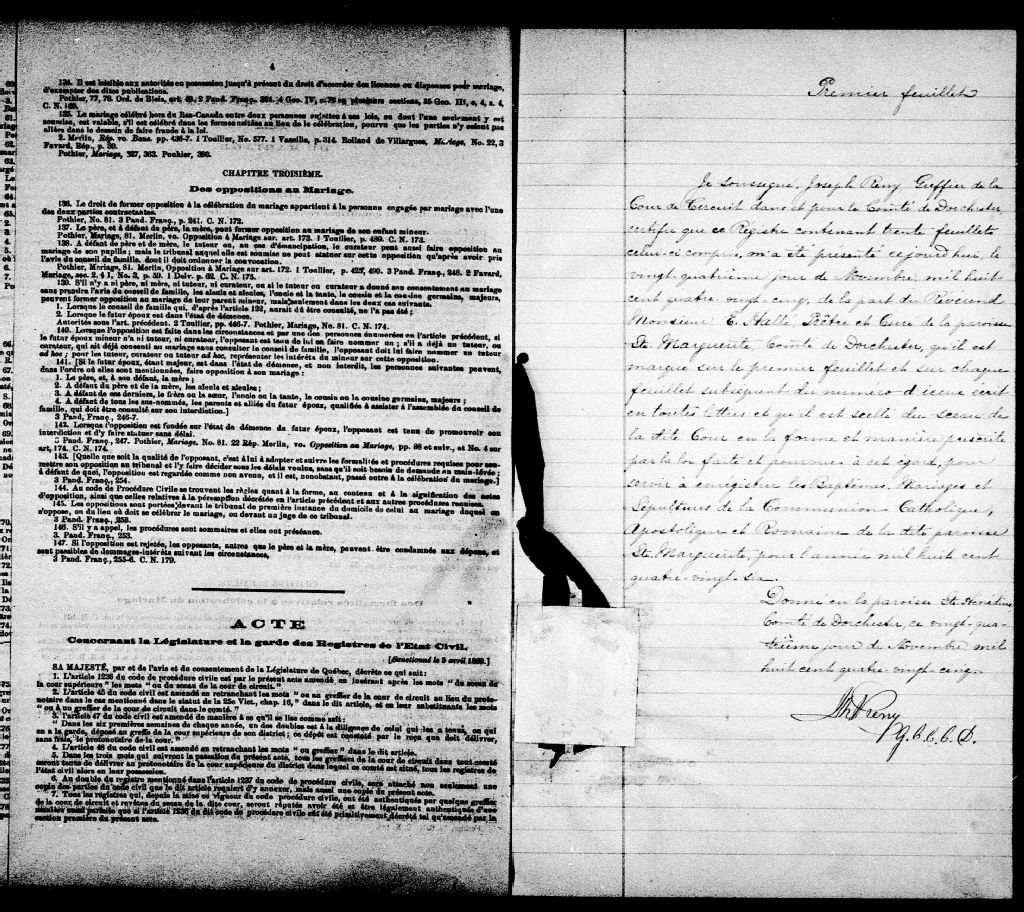 4
124. Il est loisible aux autorités en possession jusqu'à présent du droit d'accorder des licences ou dispenses pour mariage,
d'exempter des dites publications.
Pothier, 77, 78. Ord. de Blois, art. 40. 2 Pand. Franç., 4 Geo. IV, plusieurs sections, 35 Geo. III, c. 4, s. 4.
C. N. 169.
135. Le mariage célébré hors du Bas-Canada entre deux personnes sujettes à ses lois, ou dont l'une seulement y est
soumise, est valable, s'il est célébré dans les formes usitées au lieu de la célébration, pourvu que les parties n'y soient pas
allées dans le dessein de faire fraude à la loi.
2. Merlin, Rép. vo. Bans. pp. 436-7. 1 Toullier, No. 577. 1 Vazeille, p. 314. Rolland de Villargues, Mariage, No. 22, 3
Favard, Rép., p. 30.
Pothier, Mariage, 327, 363. Pouhier, 390.
CHAPITRE TROISIÈME.
Des oppositions au Mariage.
136. Le droit de former opposition à la célébration du mariage appartient à la personne engagée par mariage avec l'une
des deux parties contractantes.
Pothier, No. 81. 3 Pand. Franç., p. 241. C. N. 172.
137. Le père, et à défaut du père, la mère, peut former opposition au mariage de son enfant mineur.
Pothier, Mariage, 81. Merlin, vo. Opposition à Mariage sur. art. 173. 1 Toullier, p. 489. C. N. 173.
138. A défaut de père et de mère, le tuteur ou, au cas d'émancipation, le curateur peut aussi faire opposition au
mariage de son pupille; mais le tribunal auquel elle est soumise ne peut statuer sur cette opposition qu'après avoir pris
l'avis du conseil de famille, dont il doit ordonner la convocation.
Pothier, Mariage, 81. Merlin, Opposition à Mariage sur art. 172. 1 Toullier, p. 425, 490. 3 Pand. Franç., 248. 2 Favard,
Mariage, sec. 2. § 1, No. 3, p. 59. 1 Delv. p. 62. C. N. 175.
139. S'il n'y a ni père, ni mère, ni tuteur, ni curateur, ou si le tuteur ou curateur a donné son consentement au mariage
sans prendre l'avis du conseil de famille, les aïeuls et aïeules, l'oncle et la tante, le cousin et la cousine germains, majeurs,
peuvent former opposition au mariage de leur parent mineur, mais seulement dans les deux cas suivants.
1. Lorsque le conseil de famille qui, d'après l'article 122, aurait dû être consulté, ne l'a pas été;
2. Lorsque le futur époux est dans l'état de démence.
Autorités sous l'art. précédent. 2 Toullier, pp. 446-7. Pothier, Mariage, No. 81. C. N. 174.
140. Lorsque l'opposition est faite dans les circonstances et par une des personnes énumérées en l'article précédent, si
le futur époux mineur n'a ni tuteur, ni curateur, l'opposant est tenu de lui en faire nommer un; s'il a déjà un tuteur, ou
curateur, qui ait déjà consenti au mariage sans consulter le conseil de famille, l'opposant doit lui faire nommer un tuteur
ad hoc; pour les tuteur, curateur ou tuteur ad hoc, représenter les intérêts de ce mineur sur cette opposition.
141. [Si le futur époux, étant majeur, est dans l'état de démence, et non interdit, les personnes suivantes peuvent,
dans l'ordre où elles sont mentionnées, faire opposition à son mariage:
1. Le père, et, à son défaut, la mère;
2. A défaut du père et de la mère, les aïeuls et aïeules;
3. A défaut de ces derniers, le frère ou la sœur, l'oncle ou la tante, le cousin ou la cousine germains, majeurs;
4. A défaut de tous les sus-nommés, les parents et alliés du futur époux, qualifiés à assister à l'assemblée du conseil de
famille, qui doit être consulté sur son interdiction.]
3 Pand. Franç., 246-7.
142. Lorsque l'opposition est fondée sur l'état de démence du futur époux, l'opposant est tenu de promouvoir son
interdiction et d'y faire statuer sans délai.
3 Pand. Franç., 247. Pothier, Mariage, No. 81. 22 Rép. Merlin, vo. Opposition au Mariage, pp. 88 et suiv., et No. 4 sur
art, 174. C. N. 174.
143. [Quelle que soit la qualité de l'opposant, c'est à lui à adopter et suivre les formalités et procédures requises pour soumettre
son opposition au tribunal et l'y faire décider sous les délais voulus, sans qu'il soit besoin de demande en main-levée;
à défaut de quoi, l'opposition est regardée comme non avenue, et il est, nonobstant, passé outre à la célébration du mariage.]
3 Pand. Franç., 254.
144. Au code de Procédure Civile se trouvent les règles quant à la forme, au contenu et à la signification des actes
d'opposition, ainsi que celles relatives à la péremption décrétée en l'article précédent et aux autres procédures requises.
145. Les oppositions sont portées devant le tribunal de première instance du domicile de celui au mariage duquel on
s'oppose, ou du lieu où doit se célébrer le mariage, ou devant un juge de ce tribunal.
3 Pand. Franç., 258.
146. S'il y a appel, les procédures sont sommaires et elles ont préséance.
3. Pand. Franç., 253.
147. Si l'opposition est rejetée, les opposants, autres que le père et la mère, peuvent être condamnés aux dépens, et
sont passibles de dommages-intérêts suivant les circonstances.
3 Pand. Franç., 255-6. C. N. 179.
ACTE
Concernant la Législature et la garde des Registres de l'Etat Civil.
[Sanctionné le 5 avril 1869.]
SA MAJESTÉ, par et de l'avis et du consentement de la Législature de Québec, décrète ce qui suit:
1. L'article 1236 du code de procédure civile est par le présent acte amendé en insérant après les mots "du sceau de
la cour supérieure" les mots "ou du sceau de la cour de circuit."
2. L'article 45 du code civil est amendé en retranchant les mots "ou au greffier de la cour de circuit au lieu du protonotaire
dans le cas mentionné dans le statut de la 25e Vict., chap. 16," dans le dit article, et en leur substituant les mots
"ou à un greffier de la cour de circuit dans le comté."
3. l'article 47 du code civil est amendé de manière à ce qu'il se lise comme suit:
"Dans les six premières semaines de chaque année, un des doubles est à la diligence de celui qui les a tenus, ou qui
en a la garde, déposé au greffe de la cour supérieure de son district; ce dépôt est constaté par le reçu que doit délivrer,
sans frais, le protonotaire de la cour."
4. L'article 48 du code civil est amendé en retranchant les mots "ou greffier" dans le dit article.
5. Dans les trois mois qui suivront la passation du présent acte, tous les greffiers de la cour de circuit dans tout comté
seront tenus de délivrer au protonotaire de la cour supérieure du district dans lequel ce comté est situé, tous les registres de
l'état civil alors en leur possession.
6. Au double du registre mentionné dans l'article 1237 du code de procédure civile, sera attaché non seulement une
copie des parties du code civil que le dit article requiert d'y annexer, mais aussi une copie du présent acte.
7. Tous les registres qui, depuis la mise en vigueur du code procédure civile, ont été authentiqués par quelque greffier
de la cour de circuit et revêtus du sceau de la dite cour, seront réputés avoir été et être légalement authentiqués d'une
manière aussi parfaite que si l'article 1236 du dit code de procédure civile eût été primitivement décrété tel qu'amendé par la
section première du présent acte.
Premier feuillet
Je soussigné, Joseph Remy Greffier de la
Cour de Circuit dans et pour le Comté de Dorchester,
certifie que ce Registre contenant trente feuillets
celui-ci compris, m'a été présenté ce jourd'hui, le
vingt-quatrième jour de Novembre, mil huit
cent quatre-vingt-cinq, de la part du Révérend
Monsieur E. Hallé Prêtre et Curé de la paroisse
Ste. Marguerite Comté de Dorchester, qu'il est
marqué sur le premier feuillet et sur chaque
feuillet subséquent du numéro d'icelui écrit
en toutes lettres et qu'il est scellé du sceau de
la dite Cour en la forme et manière prescrite
par la loi faite et pourvue à cet égard, pour
servir à enrégistrer les Baptêmes, Mariages et
Sépultures de la Communion Catholique,
Apostolique et Romaine de la dite paroisse
Ste. Marguerite, pour l'année mil huit cent
quatre-vingt-six.
Donné en la paroisse Ste. Hénédine
Comté de Dorchester, ce vingt-qua-
trième jour de Novembre mil
huit cent quatre-vingt-cinq.
Jh Remy
G.C.C.C.D.